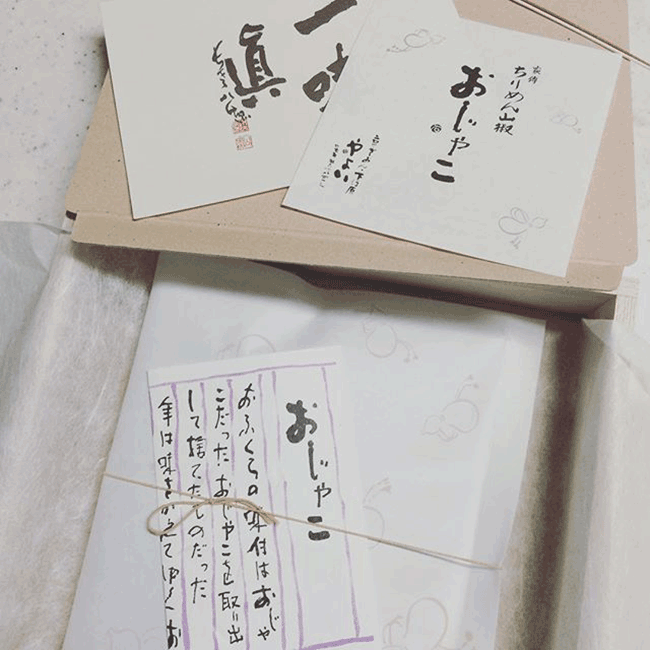 一
眞
京都
ちりめん山椒
おじゃこ
やよい
おじゃこ
おふくろの味付はおじゃ
こだった。おじゃこを取り出
して捨てたものだった
年は味をかえてゆく お